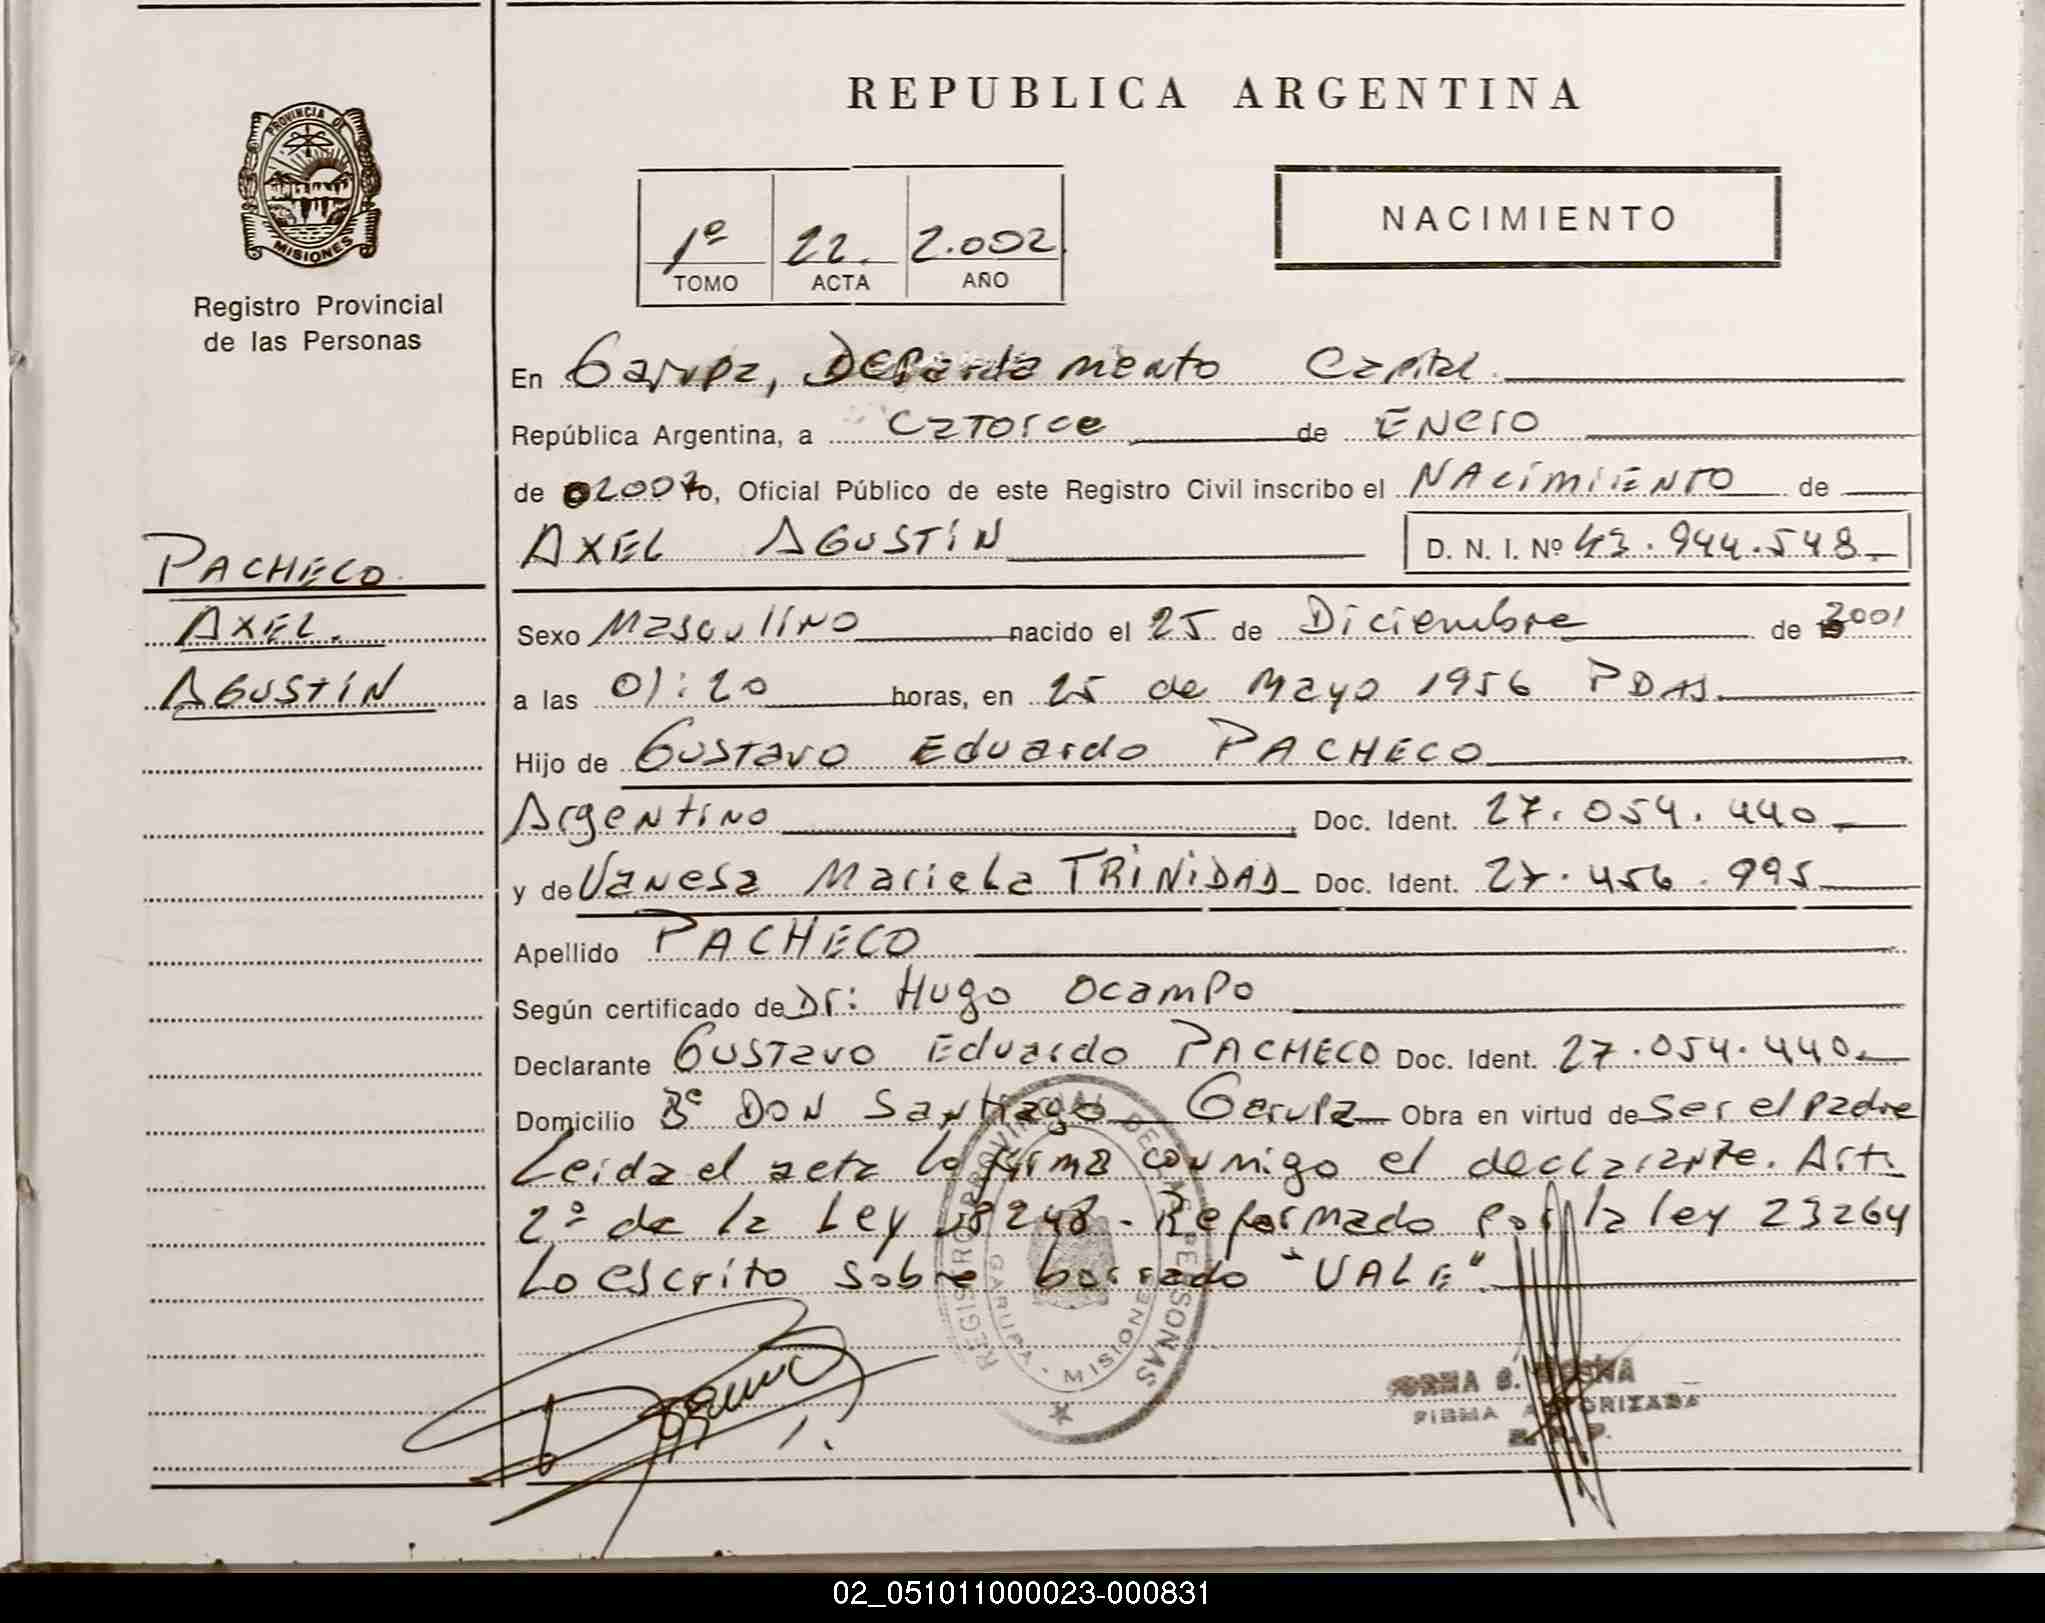 REPUBLICA ARGENTINA
PROVINCIA DE
MISIONES
Registro Provincial
de las Personas
1º 22. 2.002
TOMO ACTA AÑO
NACIMIENTO
En Garupa, DEPartamento Capital
República Argentina, a Catorce de ENEro
de 2002 yo, Oficial Público de este Registro Civil inscribo el NACIMIENTO de
AXEL AGUSTIN D. N. I. Nº 43.944.548
PACHECO
AXEL
AGUSTIN
Sexo Masculino nacido el 25 de Diciembre de 2001
a las 01:20 horas, en 25 de Mayo 1956 PDAS.
Hijo de Gustavo Eduardo PACHECO
Argentino Doc. Ident. 27.054.440
y de Vanesa Mariela TRINIDAD Doc. Ident. 27.456.995
Apellido PACHECO
Según certificado de Dr: Hugo Ocampo
Declarante Gustavo Eduardo PACHECO Doc. Ident. 27.054.440
Domicilio Bº DON Santiago Garupa Obra en virtud de Ser el padre
Leida el acta la firma conmigo el declarante. Art.
2º de la Ley 18248. Reformado por la ley 23264
Lo escrito sobre borrado "VALE"
REGISTRO PROVINCIAL DE LAS PERSONAS
GARUPA - MISIONES
FIRMA AUTORIZADA
02_051011000023-000831